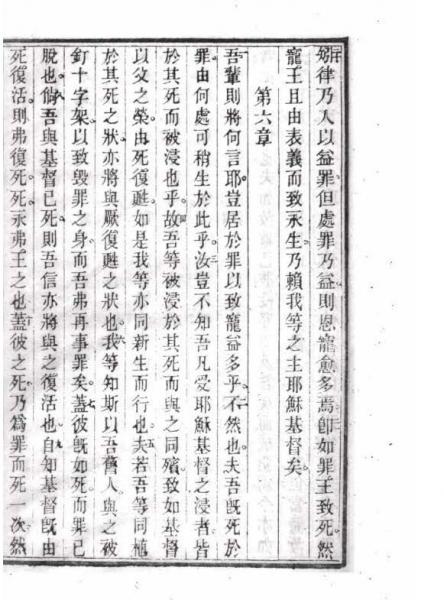 矧律乃入以益罪。但處罪乃益。則恩寵愈多焉。卽如罪王致死。然
寵王且由表義而致永生。乃賴我等之主耶穌基督矣。
第六章
吾輩則將何言耶。豈居於罪以致寵益多乎。不然也。夫吾旣死於
罪由何處可稍生於此乎。汝豈不知吾凡受耶穌基督之浸者皆
於其死而被浸也乎。故吾等被浸於其死而與之同殯致如基督
以父之榮。由死復甦。如是我等亦同新生而行也。夫若吾等同植
於其死之狀。亦將與厥復甦之狀也。我等知斯以吾舊人與之被
釘十字架。以致毀罪之身。而吾弗再事罪矣。蓋彼旣如死而罪已
脫也。倘吾與基督已死。則吾信亦將與之復活也。自知基督旣由
死復活。則弗復死。死永弗王之也。蓋彼之死。乃爲罪而死一次。然